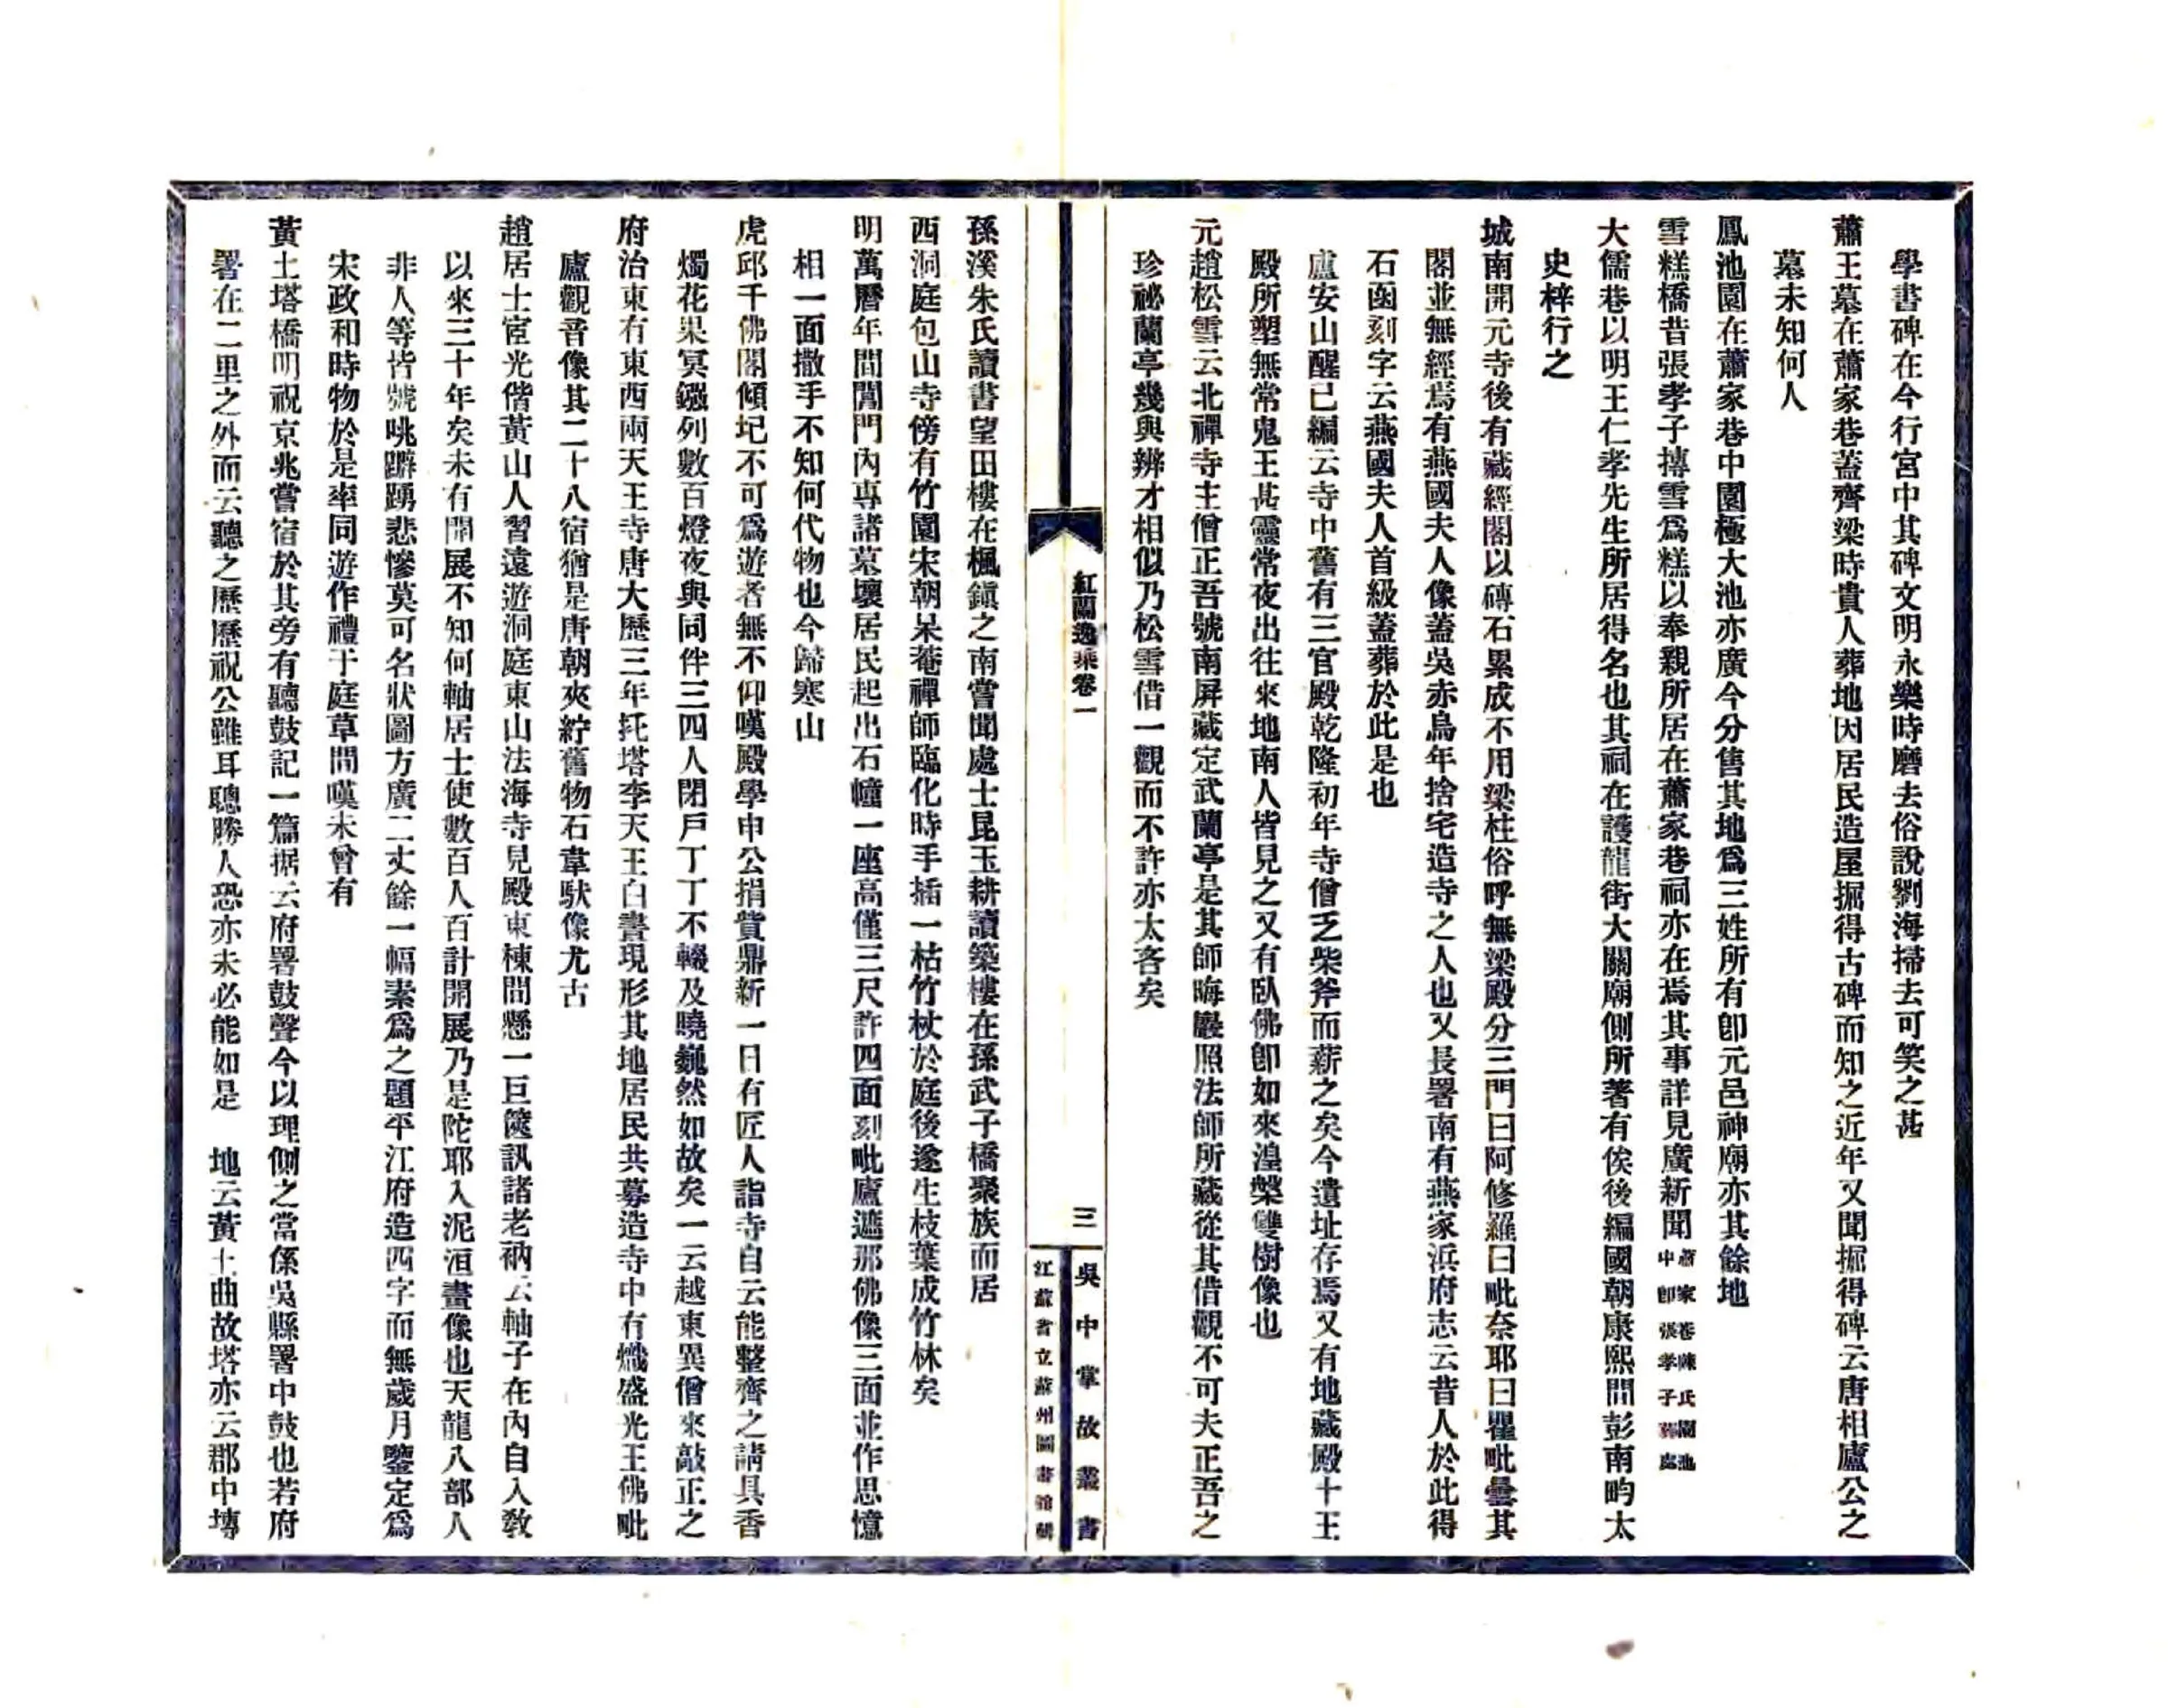 學書碑在今行宮中其碑文明永樂時磨去俗說劉海掃去可笑之甚
蕭王墓在蕭家巷蓋齊梁時貴人葬地因居民造屋掘得古碑而知之近年又聞掘得碑云唐相廬公之
墓未知何人
鳳池園在蕭家巷中園極大池亦廣今分售其地爲三姓所有卽元邑神廟亦其餘地
雪糕橋昔張孝子摶雪爲糕以奉親所居在蕭家巷祠亦在焉其事詳見廣新聞蕭家巷陳氏園池中卽張孝子葬處
大儒巷以明王仁孝先生所居得名也其祠在護龍街大關廟側所著有俟後編國朝康熙間彭南畇太
史梓行之
城南開元寺後有藏經閣以磚石累成不用梁柱俗呼無梁殿分三門曰阿修羅曰毗奈耶曰瞿毗曇其
閣並無經焉有燕國夫人像蓋吳赤烏年捨宅造寺之人也又長署南有燕家浜府志云昔人於此得
石函刻字云燕國夫人首級蓋葬於此是也
盧安山醒已編云寺中舊有三官殿乾隆初年寺僧乏柴斧而薪之矣今遺址存焉又有地藏殿十王
殿所塑無常鬼王甚靈常夜出往來地南人皆見之又有臥佛卽如來湼槃雙樹像也
元趙松雪云北禪寺主僧正吾號南屏藏定武蘭亭是其師晦巖照法師所藏從其借觀不可夫正吾之
珍祕蘭亭幾與辨才相似乃松雪借一觀而不許亦太吝矣
紅蘭逸乘卷一
三
吳中掌故叢書
江蘇省立蘇州圖書館輯
孫溪朱氏讀書望田樓在楓鎭之南嘗聞處士昆玉耕讀築樓在孫武子橋聚族而居
西洞庭包山寺傍有竹園宋朝呆菴禪師臨化時手插一枯竹杖於庭後遂生枝葉成竹林矣
明萬曆年間閶門內專諸墓壞居民起出石幢一座高僅三尺許四面刻毗廬遮那佛像三面並作思憶
相一面撒手不知何代物也今歸寒山
虎邱千佛閣傾圮不可爲遊者無不仰嘆殿學申公捐貲鼎新一日有匠人詣寺自云能整齊之請具香
燭花果冥鏹列數百燈夜與同伴三四人閉戶丁丁不輟及曉巍然如故矣一云越東異僧來敲正之
府治東有東西兩天王寺唐大歷三年托塔李天王白晝現形其地居民共募造寺中有熾盛光王佛毗
廬觀音像其二十八宿猶是唐朝夾紵舊物石韋馱像尤古
趙居士宧光偕黃山人習遠遊洞庭東山法海寺見殿東棟間懸一巨篋訊諸老衲云軸子在內自入敎
以來三十年矣未有開展不知何軸居士使數百人百計開展乃是陀耶入泥洹畫像也天龍八部人
非人等皆號咷躃踴悲慘莫可名狀圖方廣二丈餘一幅素爲之題平江府造四字而無歲月鑒定爲
宋政和時物於是率同遊作禮于庭草間嘆未曾有
黃土塔橋明祝京兆嘗宿於其旁有聽鼓記一篇据云府署鼓聲今以理側之當係吳縣署中鼓也若府
署在二里之外而云聽之歷歷祝公雖耳聰勝人恐亦未必能如是　地云黃土曲故塔亦云郡中塼